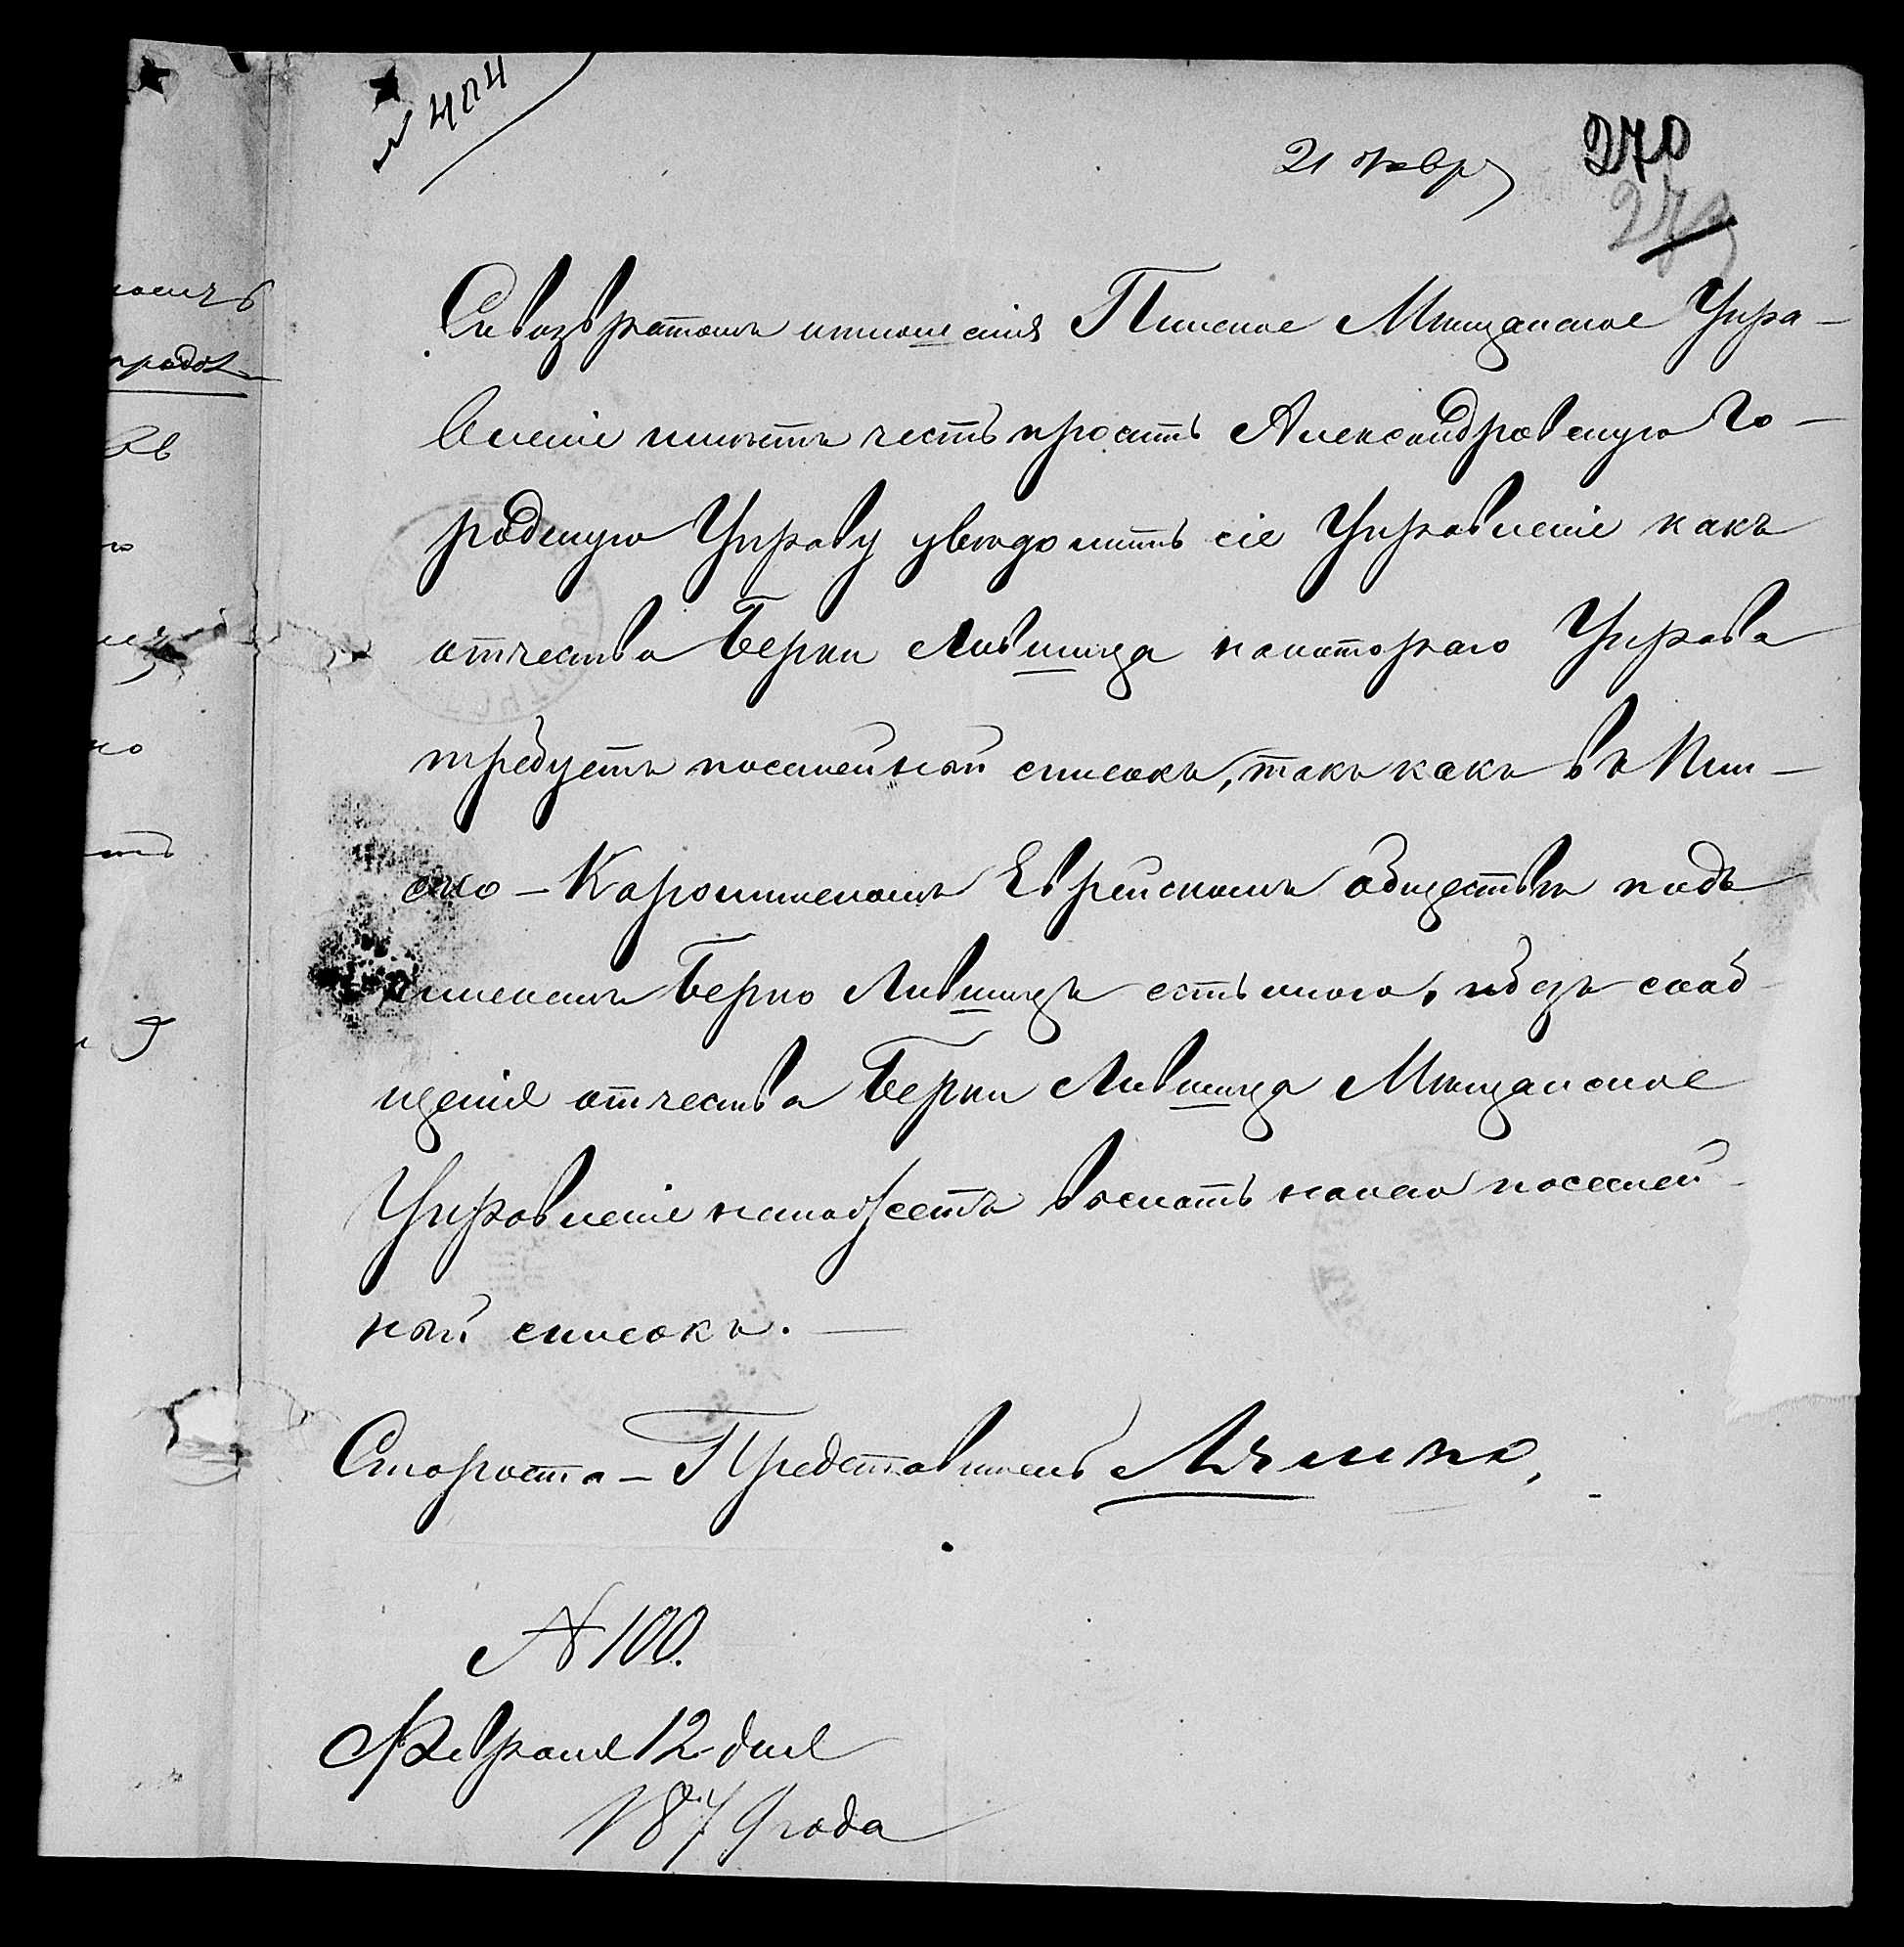 № 404
21 февр
270
273
Съ возвратомъ отношенія Пинское Мѣщанское Упра-
вленіе имѣетъ честь просить Александровскую Го-
родскую Управу увѣдомить сіе Управленіе какъ
отчество Берки Лившица на котораго Управа
требуетъ посемейный списокъ, такъ какъ въ Пин-
ско-Каролинскомъ Еврейскомъ обществѣ подъ
именемъ Берко Лившицъ есть много, и безъ сооб-
щенія отчества Берки Лившица Мѣщанское
Управленіе не можетъ выслать на него посемей-
ный списокъ. —
Староста-Представитель
№ 100.
Февраля 12 дня
1879 года